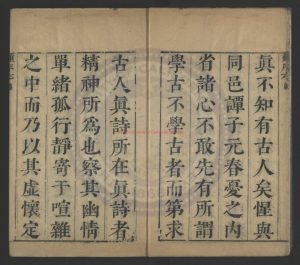 眞不知有古人矣惺與
同邑譚子元春憂之內
省諸心不敢先有所謂
學古不學古者而第求
古人眞詩所在眞詩者
精神所爲也察其幽情
單緒孤行靜寄于喧雜
之中而乃以其虛懷定